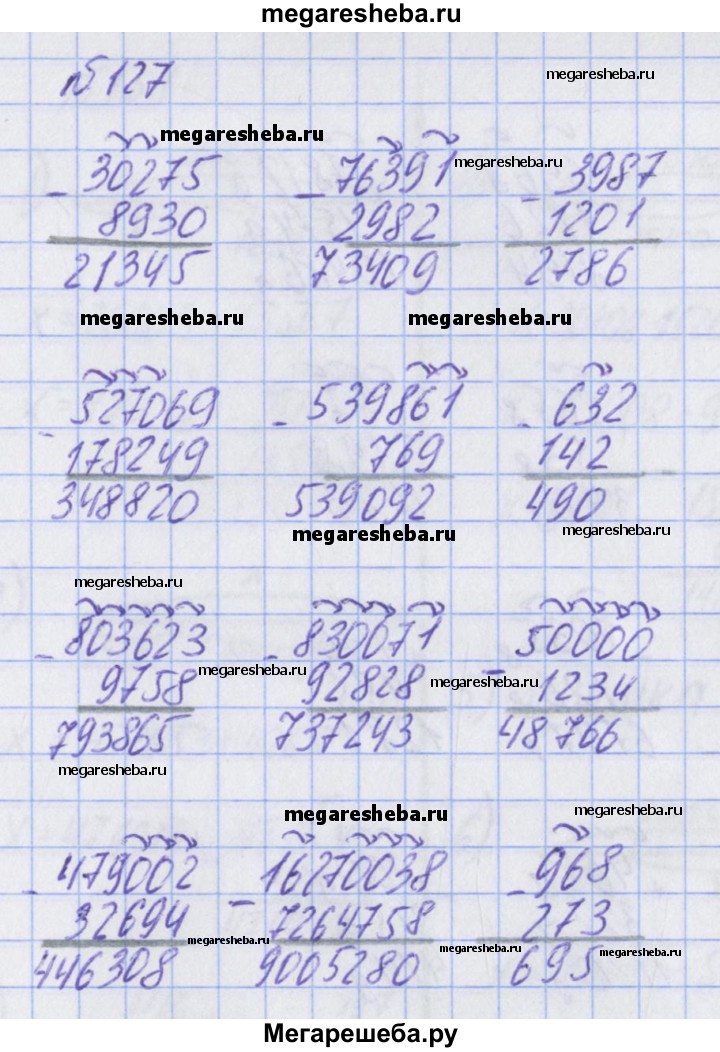 megaresheba.ru
№127
megaresheba.ru
megaresheba.ru
- 30275 - 76391 megaresheba.ru - 3987
8930 2982 1201
21345 73409 2786
megaresheba.ru megaresheba.ru
- 527069 - 539861 - 632
178249 769 142
348820 539092 490
megaresheba.ru megaresheba.ru
megaresheba.ru
- 803623 - 830071 - 50000
9758 megaresheba.ru 92828 megaresheba.ru 1234
793865 737243 48766
megaresheba.ru
megaresheba.ru megaresheba.ru
- 479002 - 16270038 - 968
32694 7264758 273
446308 megaresheba.ru 9005280 megaresheba.ru 695 megaresheba.ru
Мегарешеба.ру